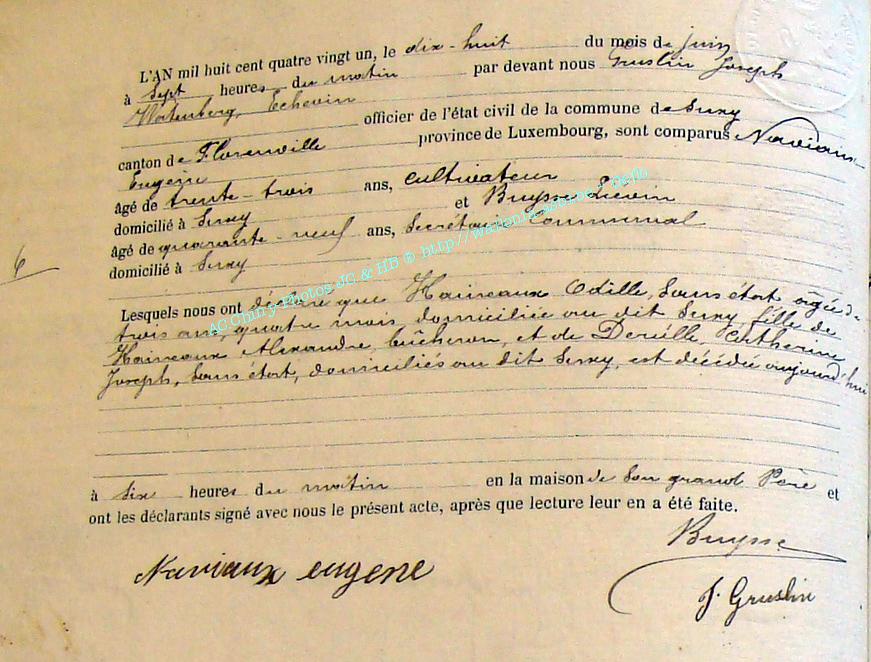 L'AN mil huit cent quatre vingt un, le dix-huit du mois de juin
à Sept heures du matin par devant nous Gruslin Joseph
Echevin
officier de l'état civil de la commune de Suxy
canton de Florenville province de Luxembourg, sont comparus Naviaux
Eugène
âgé de trente-trois ans, cultivateur
domicilié à Suxy et Buysse Lievin
âgé de quarante-neuf ans, Secrétaire Communal
domicilié à Suxy
6
Lesquels nous ont déclaré que Haineaux Odille, Sans état âgée de
trois ans, quatre mois domiciliée au dit Suxy fille de
Haineaux Alexandre, bûcheron, et de Deville, Catherine
Joseph, Sans état, domiciliés au dit Suxy, est décédée aujourd'hui
à Six heures du matin en la maison de Son grand Père et
ont les déclarants signé avec nous le présent acte, après que lecture leur en a été faite.
Buysse
Naviaux eugene
J. Gruslin
AC Chiny Photos JG & HB ® http://